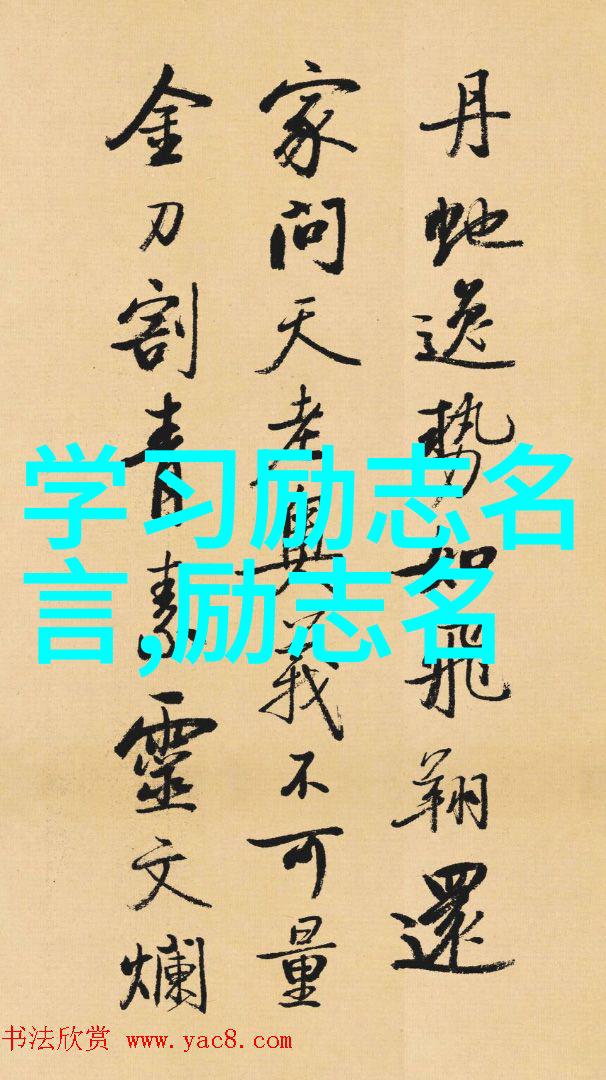 丹虵逸勢如飛翔還
家問天老奧義不可量
金刀割青素靈文爛
学习励志名
言,励志名
书法欣赏 www.yac8.com